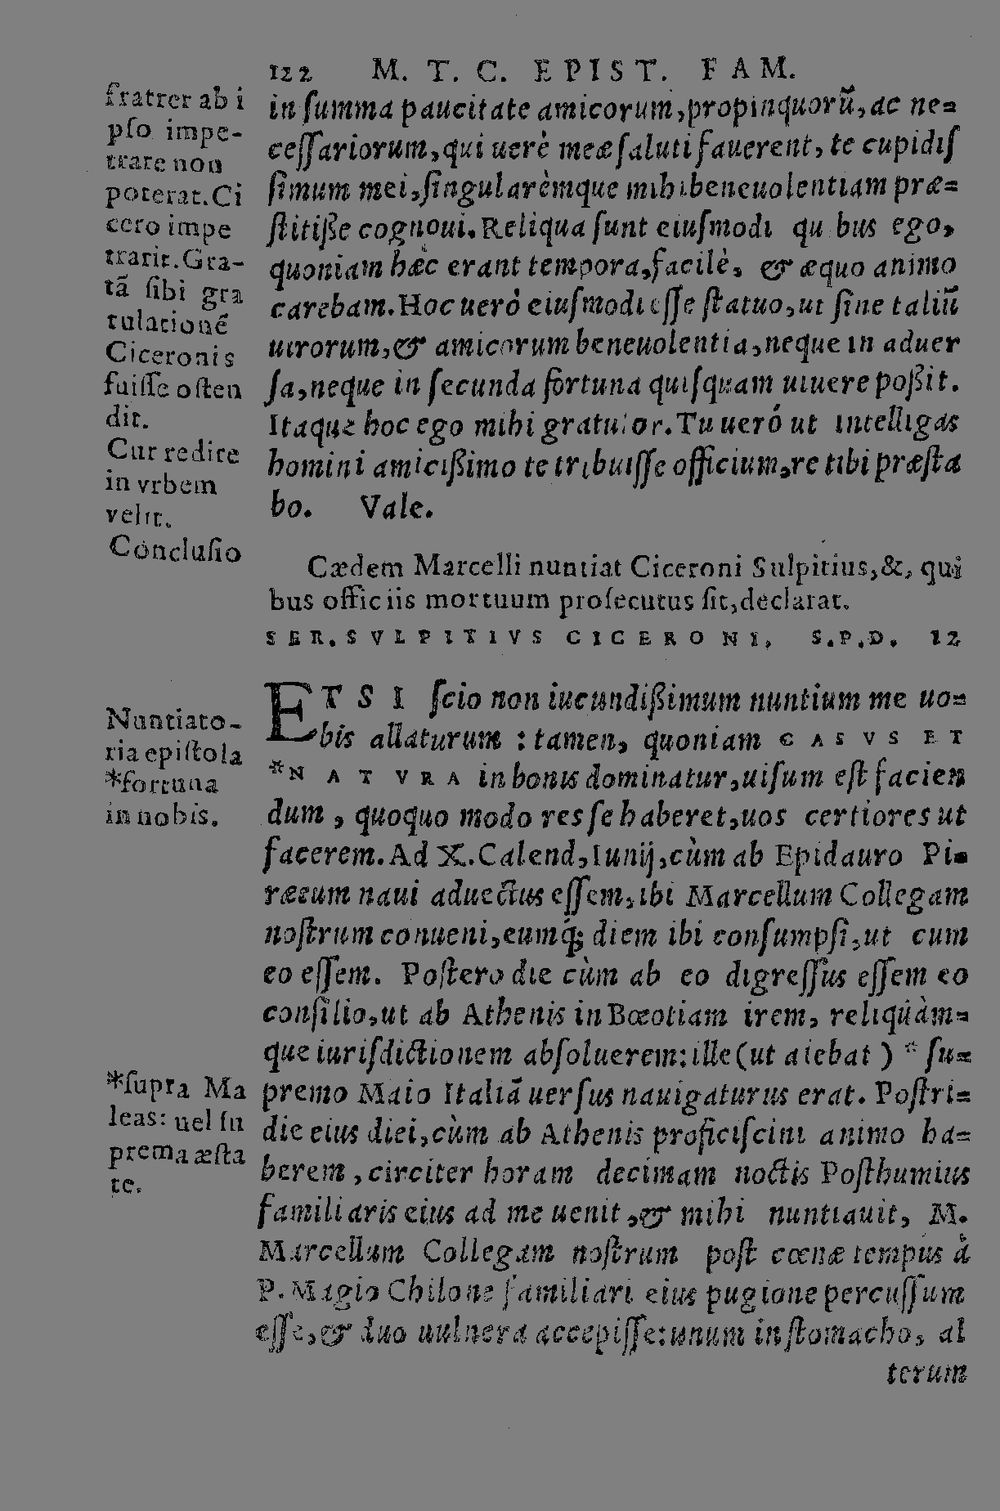 122 M. T. C. EPIST. FAM.
fratrer ab i
pso impe-
trare non
poterat. Ci
cero impe
trarit. Gra-
tā sibi gra
tulationē
Ciceronis
fuisse osten
dit.
Cur redire
in vrbem
velit.
Conclusio
in summa paucitate amicorum, propinquorū, ac ne=
cessariorum, qui uerè meæ saluti fauerent, te cupidis
simum mei, singularèmque mihi beneuolentiam præ=
stitiße cognoui. Reliqua sunt eiusmodi qu bus ego,
quoniam hæc erant tempora, facilè, & æquo animo
carebam. Hoc uerò eiusmodi esse statuo, ut sine taliū
uirorum, & amicorum beneuolentia, neque in aduer
sa, neque in secunda fortuna quisquam uiuere poßit.
Itaque hoc ego mihi gratulor. Tu uerò ut intelligas
homini amicißimo te tribuisse officium, re tibi præsta
bo. Vale.
Cædem Marcelli nuntiat Ciceroni Sulpitius, &, qui
bus officiis mortuum prosecutus sit, declarat.
SER. SVLPITIVS CICERONI, S.P.D. 12
ETSI scio non iucundißimum nuntium me uo=
bis allaturum : tamen, quoniam CASVS ET
*NATVRA in bonis dominatur, uisum est facien
dum, quoquo modo res se haberet, uos certiores ut
facerem. Ad X. Calend, Iunij, cùm ab Epidauro Pi=
ræeum naui aduectus essem, ibi Marcellum Collegam
nostrum conueni, eumq́; diem ibi consumpsi, ut cum
eo essem. Postero die cùm ab eo digressus essem eo
consilio, ut ab Athenis in Bœotiam irem, reliquàm=
que iurisdictionem absoluerem: ille (ut aiebat) * su=
premo Maio Italiā uersus nauigaturus erat. Postri=
die eius diei, cùm ab Athenis proficisci animo ha=
berem, circiter horam decimam noctis Posthumius
familiaris eius ad me uenit, & mihi nuntiauit, M.
Marcellum Collegam nostrum post cœnæ tempus à
P. Magio Chilone familiari eius pugione percussum
esse, & duo uulnera accepisse: unum in stomacho, al
terum
Nuntiato-
ria epistola
*fortuna
in nobis.
*supra Ma
leas: uel su
prema æsta
te.